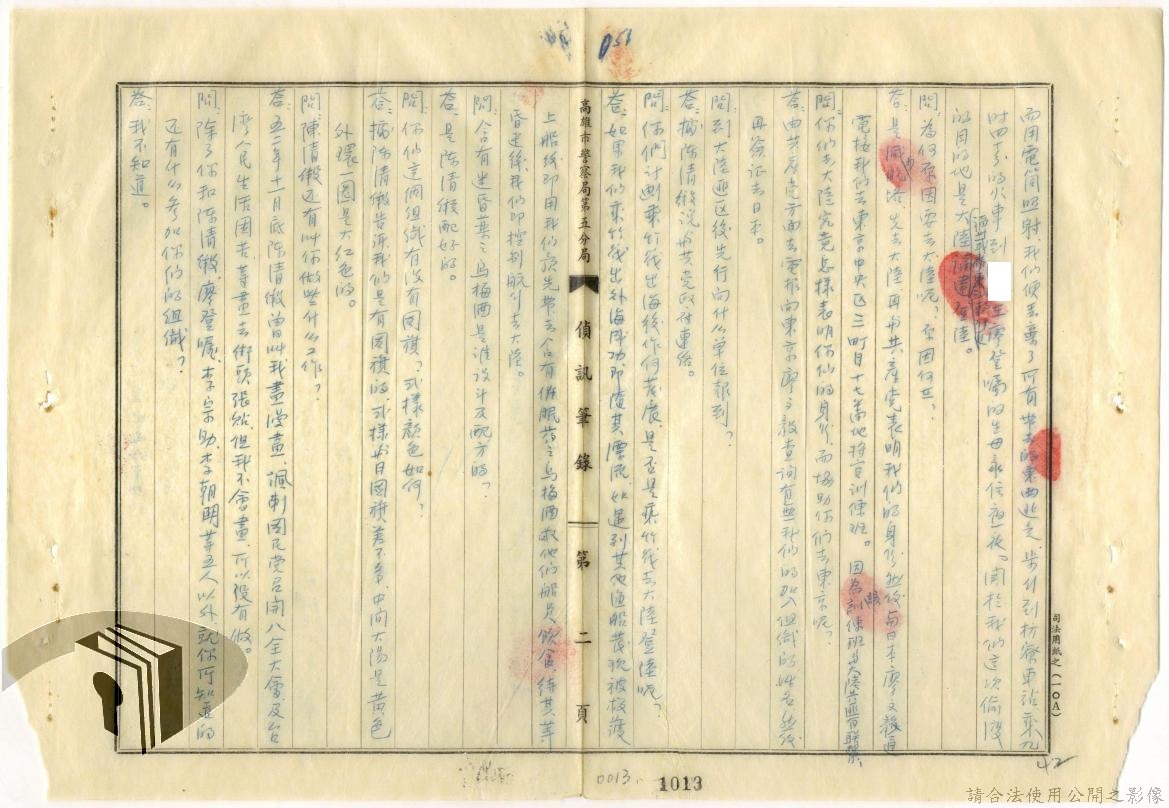 051
而用電筒照射，我們便丟棄了所有帶去的東西逃走，步行到枋寮車站，乘九
時四十分的火車到
在廖登囑的生母家住一夜。關於我們這次偷渡
的目的地是大陸
登陸。
問：為何原因要去大陸呢？原因何在？
答：是
先去大陸再與共產党表明我們的身份，然後與日本廖文毅通
電，接我們去東京中央区三町目十七番地將官訓練班。因為訓練班與大陸共匪有聯繫
問：你們去大陸究竟怎樣表明你們的身份，而協助你們去東京呢？
答：由共產党方面去電報向東京廖文毅查詢有無我們的加入組織的姓名，然後
再簽証去日本。
問：到大陸匪区後先行向什么單位報到？
答：據陳清緞說與共党政府連絡。
問：你們計劃乘竹筏出海後作何發展，是否是乘竹筏去大陸登陸呢？
答：如果我們乘竹筏出外海成功，即隨其漂流，如遇到其他漁船發現被救渡
高雄市警察局第五分局
偵訊筆錄
第二頁
上船後即用我們預先帶去含有催眠葯之烏梅酒敬他們船員飲食，待其等
昏迷後，我們即控制航行去大陸。
問：含有迷昏葯之烏梅酒是誰設計及配方的？
答：是陳清緞配好的。
問：你們這個組織有沒有國旗？式樣顏色如何？
答：據陳清緞告訴我們是有國旗的，式樣與日國旗差不多，中間太陽是黃色
外環一圈是大紅色的。
問：陳清緞還有叫你做些什么工作？
答：五二年十一月底陳清緞曾叫我畫漫畫，諷刺國民党召開八全大會及台
灣人民生活困苦等畫去街頭張貼，但我不會畫，所以沒有做。
問：除了你和陳清緞、廖登囑、李宗助、李朝明等五人以外，就你所知道的
還有什么參加你們的組織？
答：我不知道。
司法用紙之(一〇A)
42
0013
1013
請合法使用公開之影像